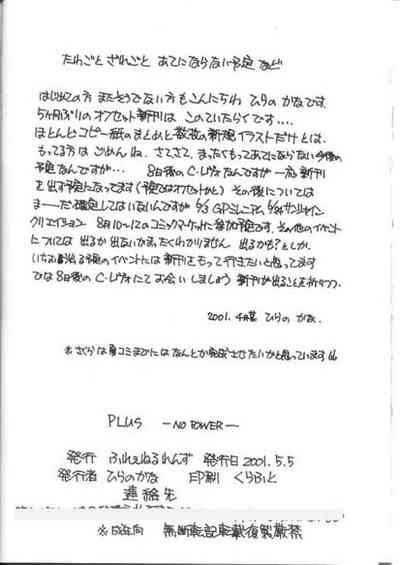 たわごと ざれごと あてにならない予定 など…
はじめての方 またそうでない方もこんにちわ ひらの かなです.
5ヶ月ぶりのオフセット新刊は このていたらくです….
ほとんどコピー紙のまとめと数枚の新規イラストだけとは、
もってる方は ごめんね. さてさて、まったくもってあてにならない今後の
予定なんですが… 8日後のC・レヴォなんですが 一応 新刊
を出す予定になってます(予定ではオフセットかと) その後については
まーだ確定してはいないんですが GPミレニアム サンシャイン
クリエイション 8月10〜12のコミックマーケットに参加予定です. その他のイベント
については 出るか出ないか まったくわかりません 出るかも?としか.
いちお 出る予定のイベントには 新刊をもって行きたいと思ってます
では 8日後の C・レヴォにて お会いしましょう 新刊が出ることを祈りつつ.
2001. 4月某 ひらの かな.
※さくらは夏コミまでには なんとか完成させたいかと思っています
PLUS —NO POWER—
発行 ふれねるれんず 発行日 2001.5.5
発行者 ひらのかな 印刷 くりえいと
連絡先
無断転記転載複製厳禁